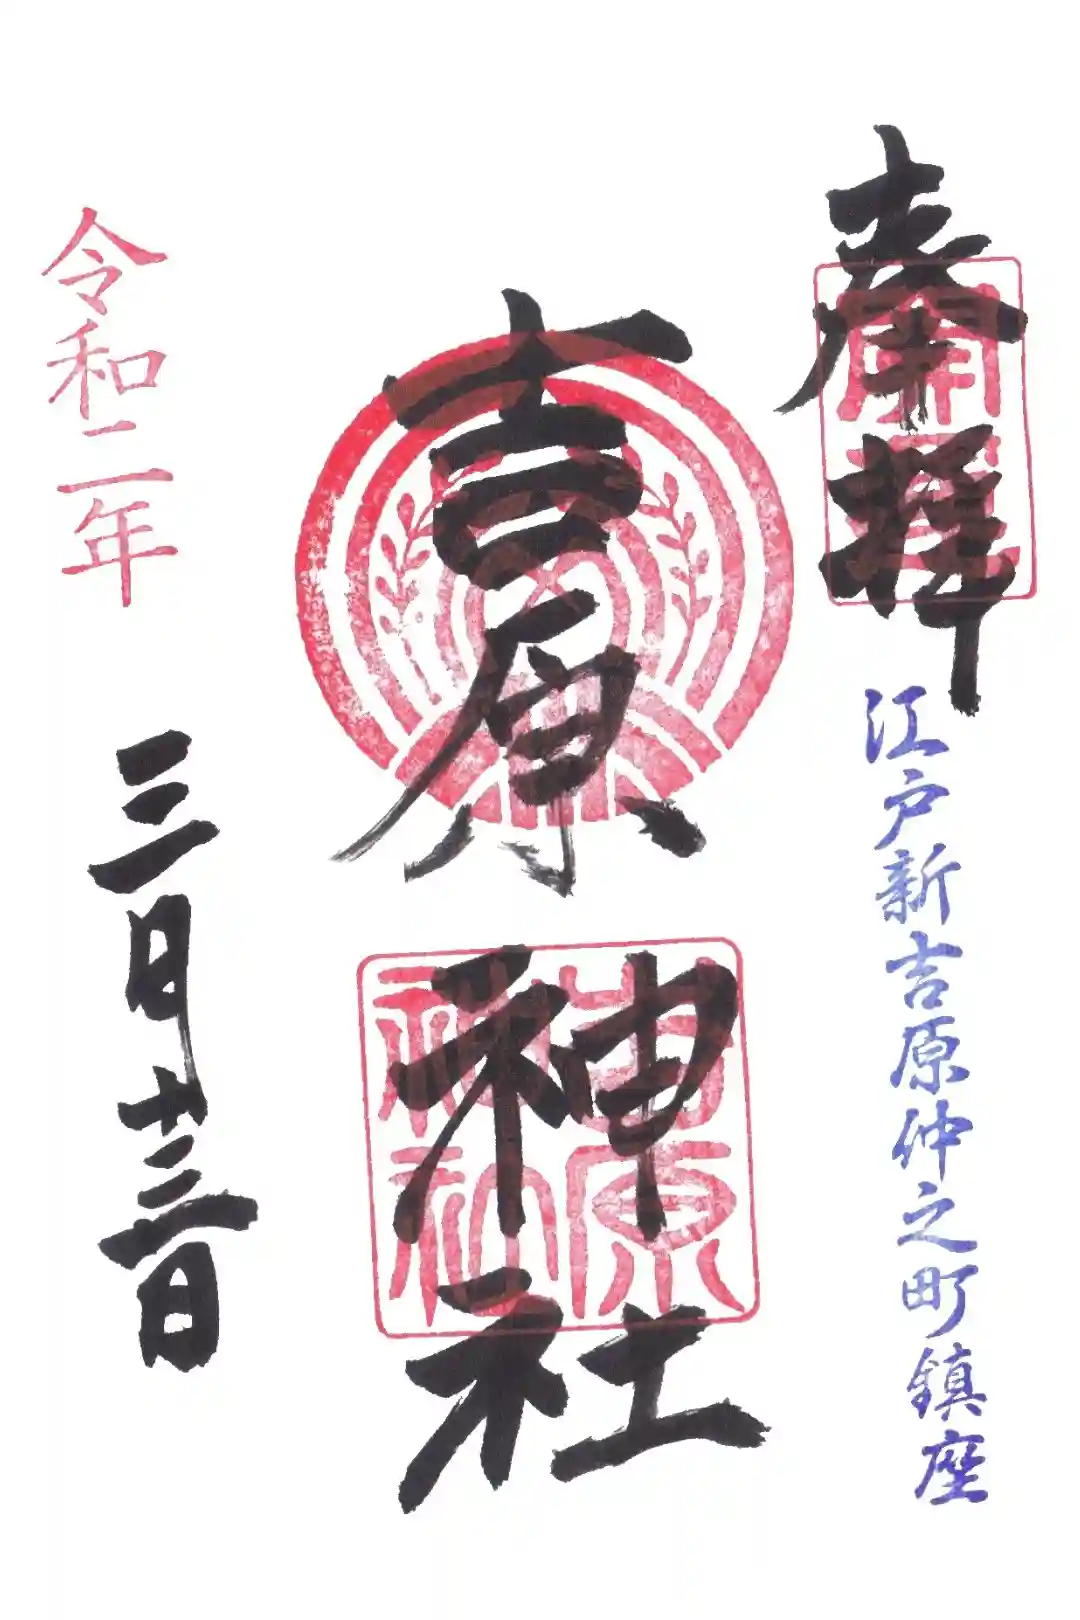 奉拝
江戸新吉原仲之町鎮座
吉原神社
吉原神社
令和二年
三月十三日